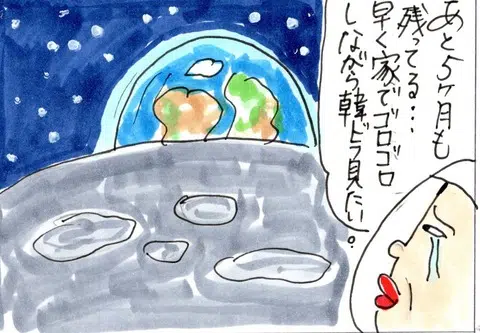 あと5ヶ月も
残ってる…
早く家でゴロゴロ
しながら韓ドラ見たい。